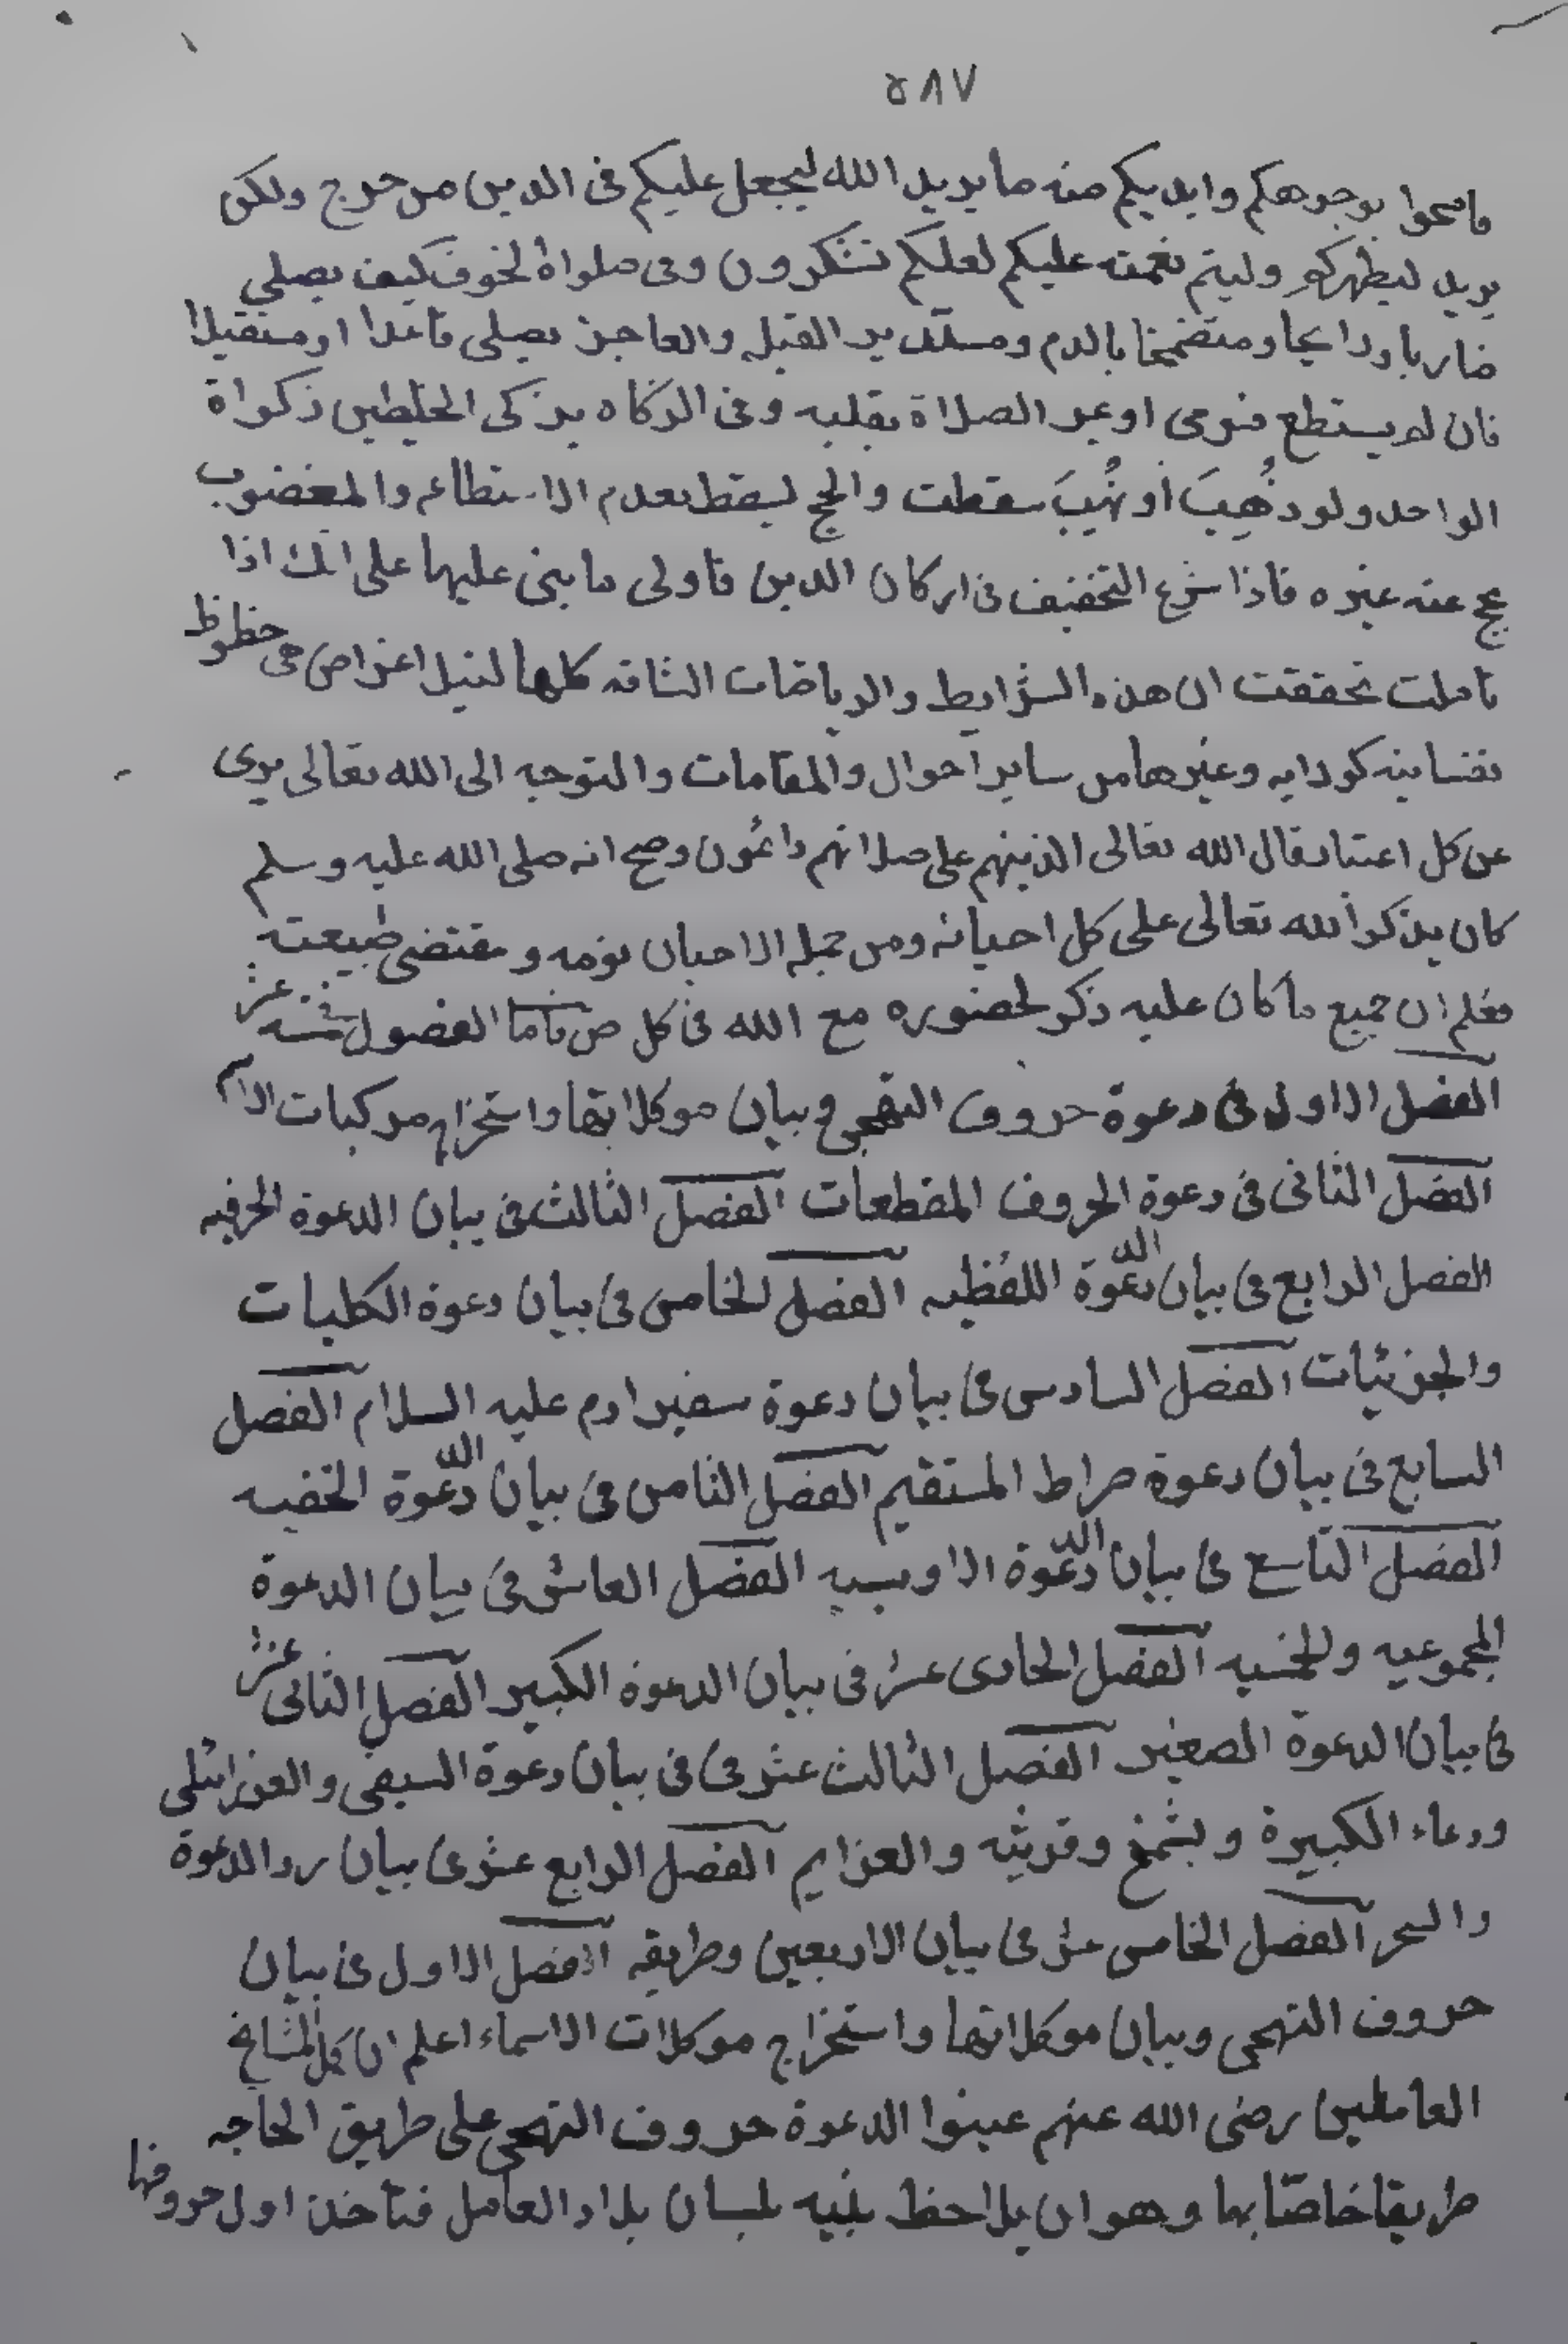 ٥٨٧
فامسحوا بوجوهكم وايديكم منه ما يريد الله ليجعل عليكم فى الدين من حرج ولكن
يريد ليطهركم وليتم نعمته عليكم لعلكم تشكرون وفى صلواة الخوف كيف يصلى
ضاربا وذابحا ومتضمخا بالدم ومستدبر القبله والعاجز يصلى قاعدا او مستقبلا
فان لم يستطع فنومى او عبر الصلاة بقلبه وفى الزكاه يزكى الخلطين زكواة
الواحد ولو ذُهِبَ أو نُهِبَ سقطت والحج ليسقط بعدم الاستطاعه والمغضوب
يحج عنه غيره فاذا شرع التخفيف فى اركان الدين فاولى ما بنى عليها على انك اذا
تاملت تحققت ان هذه الشرايط والرياضات الشاقه كلها لنيل اغراض هى حظوظ
نفسانيه كورايه وغيرها من ساير احوال والمقامات والتوجه الى الله تعالى برى
عن كل اعتبار قال الله تعالى الذينهم على صلاتهم دائمون وصح انه صلى الله عليه وسلم
كان يذكر الله تعالى على كل احيانه ومن جمله الاحيان نومه ومقتضى طبيعته
فعلم ان جميع ما كان عليه ذكر لحضوره مع الله فى كل فاما الفصول فخمسه عشر
الفصل الاول فى دعوة حروف التهجى وبيان موكلاتها واستخراج مركبات الاسم
الفصل الثانى فى دعوة الحروف المقطعات الفصل الثالث فى بيان الدعوة الحرفيه
الفصل الرابع فى بيان الدعوة اللفظيه الفصل الخامس فى بيان دعوة الكليات
والجزئيات الفصل السادس فى بيان دعوة سفير ادم عليه السلام الفصل
السابع فى بيان دعوة صراط المستقيم الفصل الثامن فى بيان الدعوة الخفيه
الفصل التاسع فى بيان الدعوة الاويسيه الفصل العاشر فى بيان الدعوة
المجموعيه والخمسيه الفصل الحادى عشر فى بيان الدعوة الكبير الفصل الثانى عشر
فى بيان الدعوة الصغير الفصل الثالث عشر فى فى بيان دعوة السيفى والعزرائيلى
ودعاء الكبيرة وبشمخ وقرشيه والعزايم الفصل الرابع عشر فى بيان رد الدعوة
والسحر الفصل الخامس عشر فى بيان الاربعين وطريقه الفصل الاول فى بيان
حروف التهجى وبيان موكلاتها واستخراج موكلات الاسماء اعلم ان كمل المشايخ
العاملين رضى الله عنهم عينوا الدعوة حروف التهجى على طريق الحاجه
طريقا خاصّا بها وهو ان يلاحظ بنيه لمسان بلاد العامل فتأخذ اول حروفها